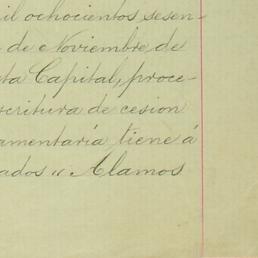 il ochocientos sesen-
de Noviembre de
ta Capital, proce-
scritura de cesion
amentaría tiene á
ados " Alamos